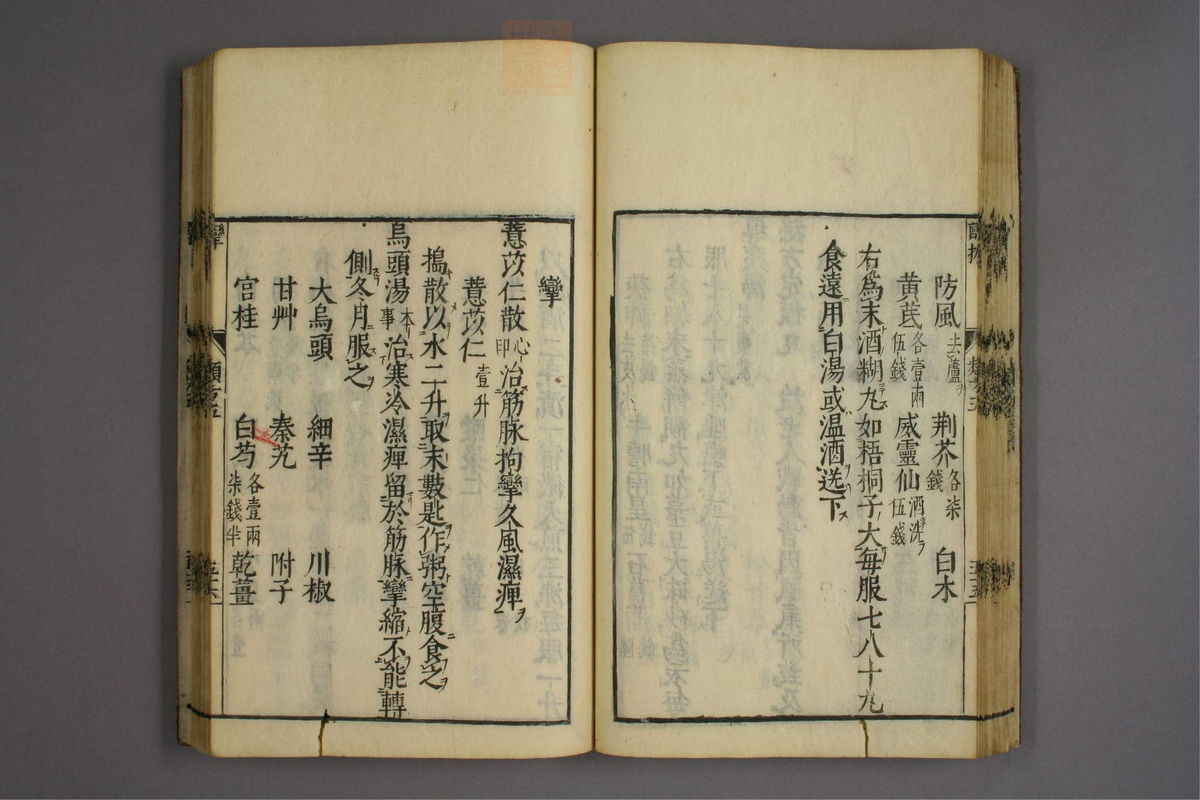 防風去蘆ヲ 荆芥各柒錢 白木
黄芪各壹兩伍錢 威靈仙酒洗ヲ伍錢
右爲末酒糊九如梧桐子大每服七八十九
食遠用白湯或温酒送下
攣
薏苡仁散心印治筋脉拘攣久風濕痺
薏苡仁壹升
搗散以水二升取末數匙作粥空腹食之
烏頭湯本事治寒冷濕痺留於筋脉攣縮不能轉
側冬月服之
大烏頭 細辛 川椒
甘艸 秦艽 附子
官桂 白芍各壹兩柒錢半 乾薑